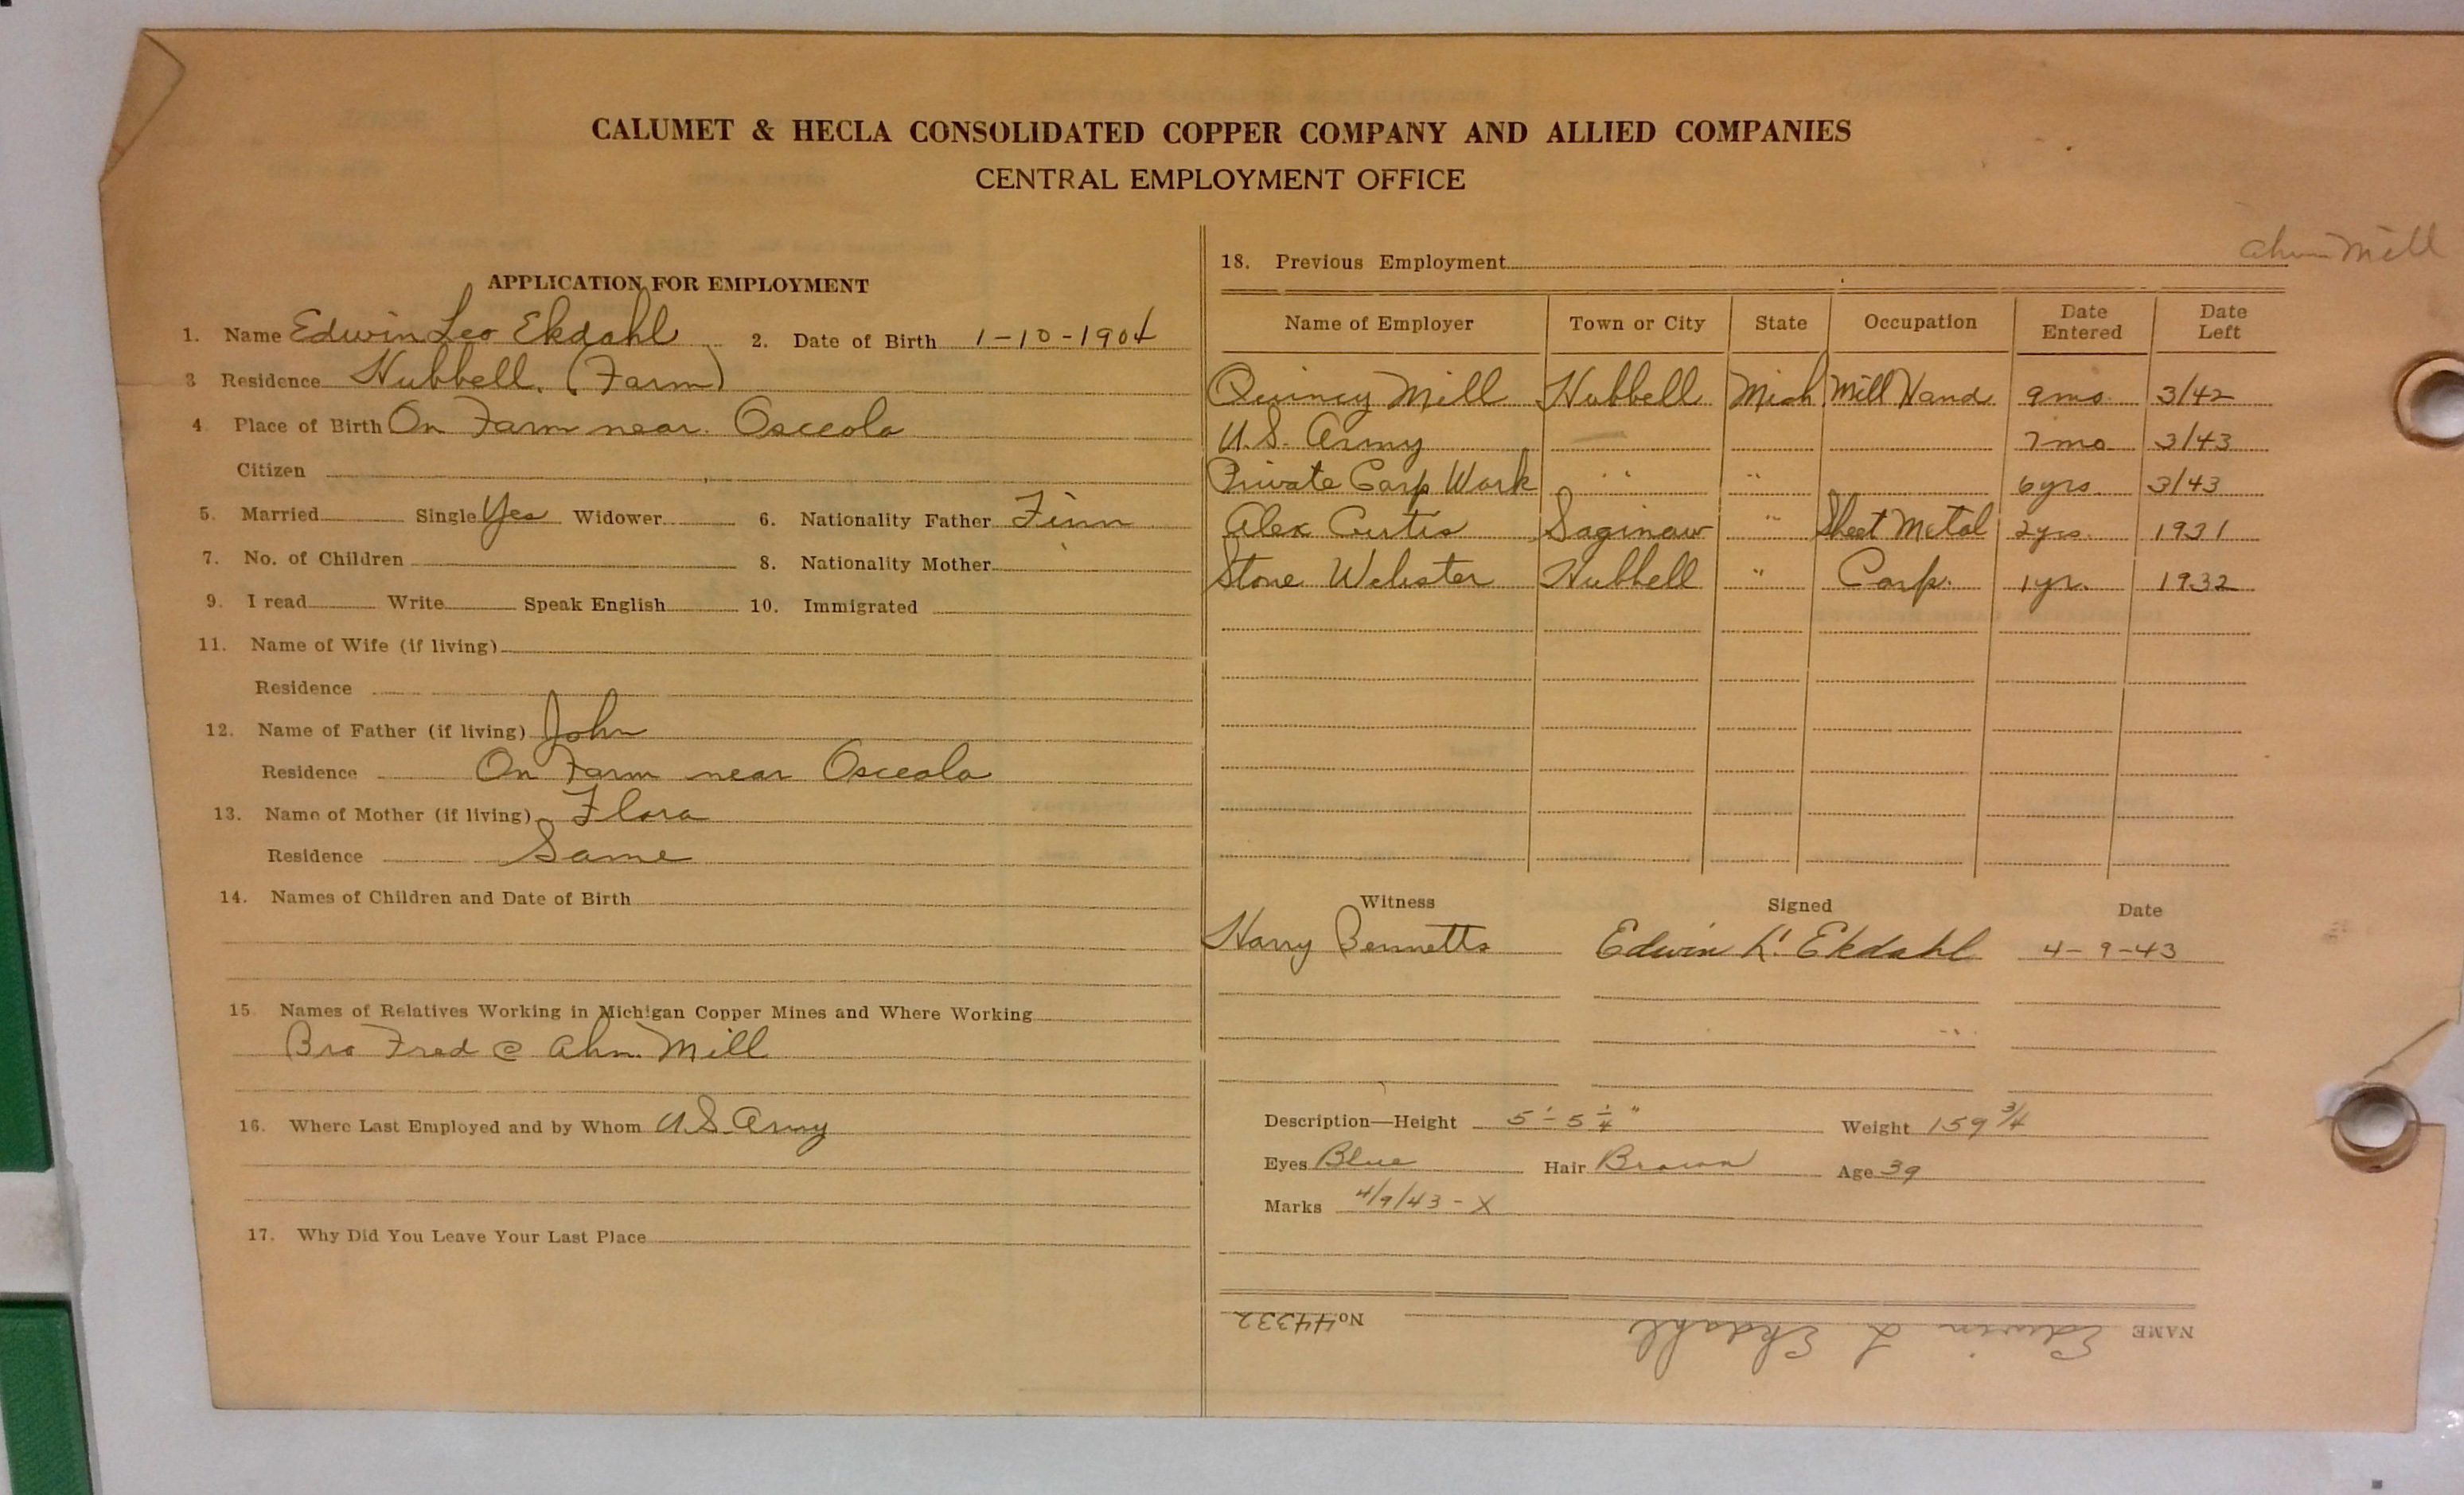 CALUMET & HECLA CONSOLIDATED COPPER COMPANY AND ALLIED COMPANIES
CENTRAL EMPLOYMENT OFFICE
APPLICATION FOR EMPLOYMENT
1. Name Edwin Leo Ekdahl 2. Date of Birth 1-10-1904
3 Residence Hubbell. (Farm)
4 Place of Birth On Farm near Osceola
Citizen
5. Married Single Yes Widower 6. Nationality Father Finn
7. No. of Children 8. Nationality Mother "
9. I read Write Speak English 10. Immigrated
11. Name of Wife (if living)
Residence
12. Name of Father (if living) John
Residence On Farm near Osceola
13. Name of Mother (if living) Flora
Residence Same
14. Names of Children and Date of Birth
15. Names of Relatives Working in Michigan Copper Mines and Where Working
Bro Fred @ Ahm. Mill
16. Where Last Employed and by Whom U.S. Army
17. Why Did You Leave Your Last Place
Ahm Mill
18. Previous Employment
Name of Employer Town or City State Occupation Date Entered Date Left
Quincy Mill Hubbell Mich Mill Hand 9 mo. 3/42
U.S. Army 7 mo 3/43
Private Carp Work " " 6 yrs. 3/43
Alex Curtis Saginaw " Sheet Metal 2 yrs. 1931
Stone Webster Hubbell " Carp. 1 yr. 1932
Witness Signed Date
Harry Bennetts Edwin L. Ekdahl 4-9-43
Description—Height 5'-5 1/4" Weight 159 3/4
Eyes Blue Hair Brown Age 39
Marks 4/9/43 - X
NAME Edwin L Ekdahl No. 44332